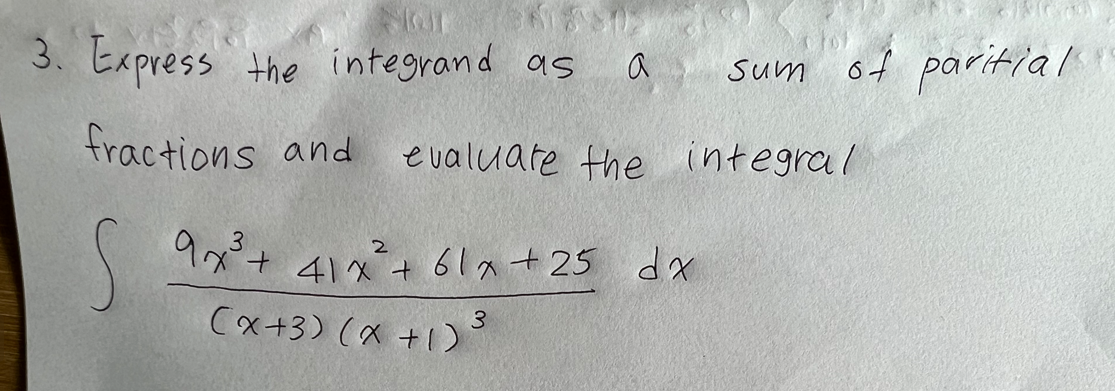 3. Express the integrand as a sum of paritial
fractions and evaluate the integral
∫ (9x³ + 41x² + 61x + 25) / ((x+3)(x+1)³) dx